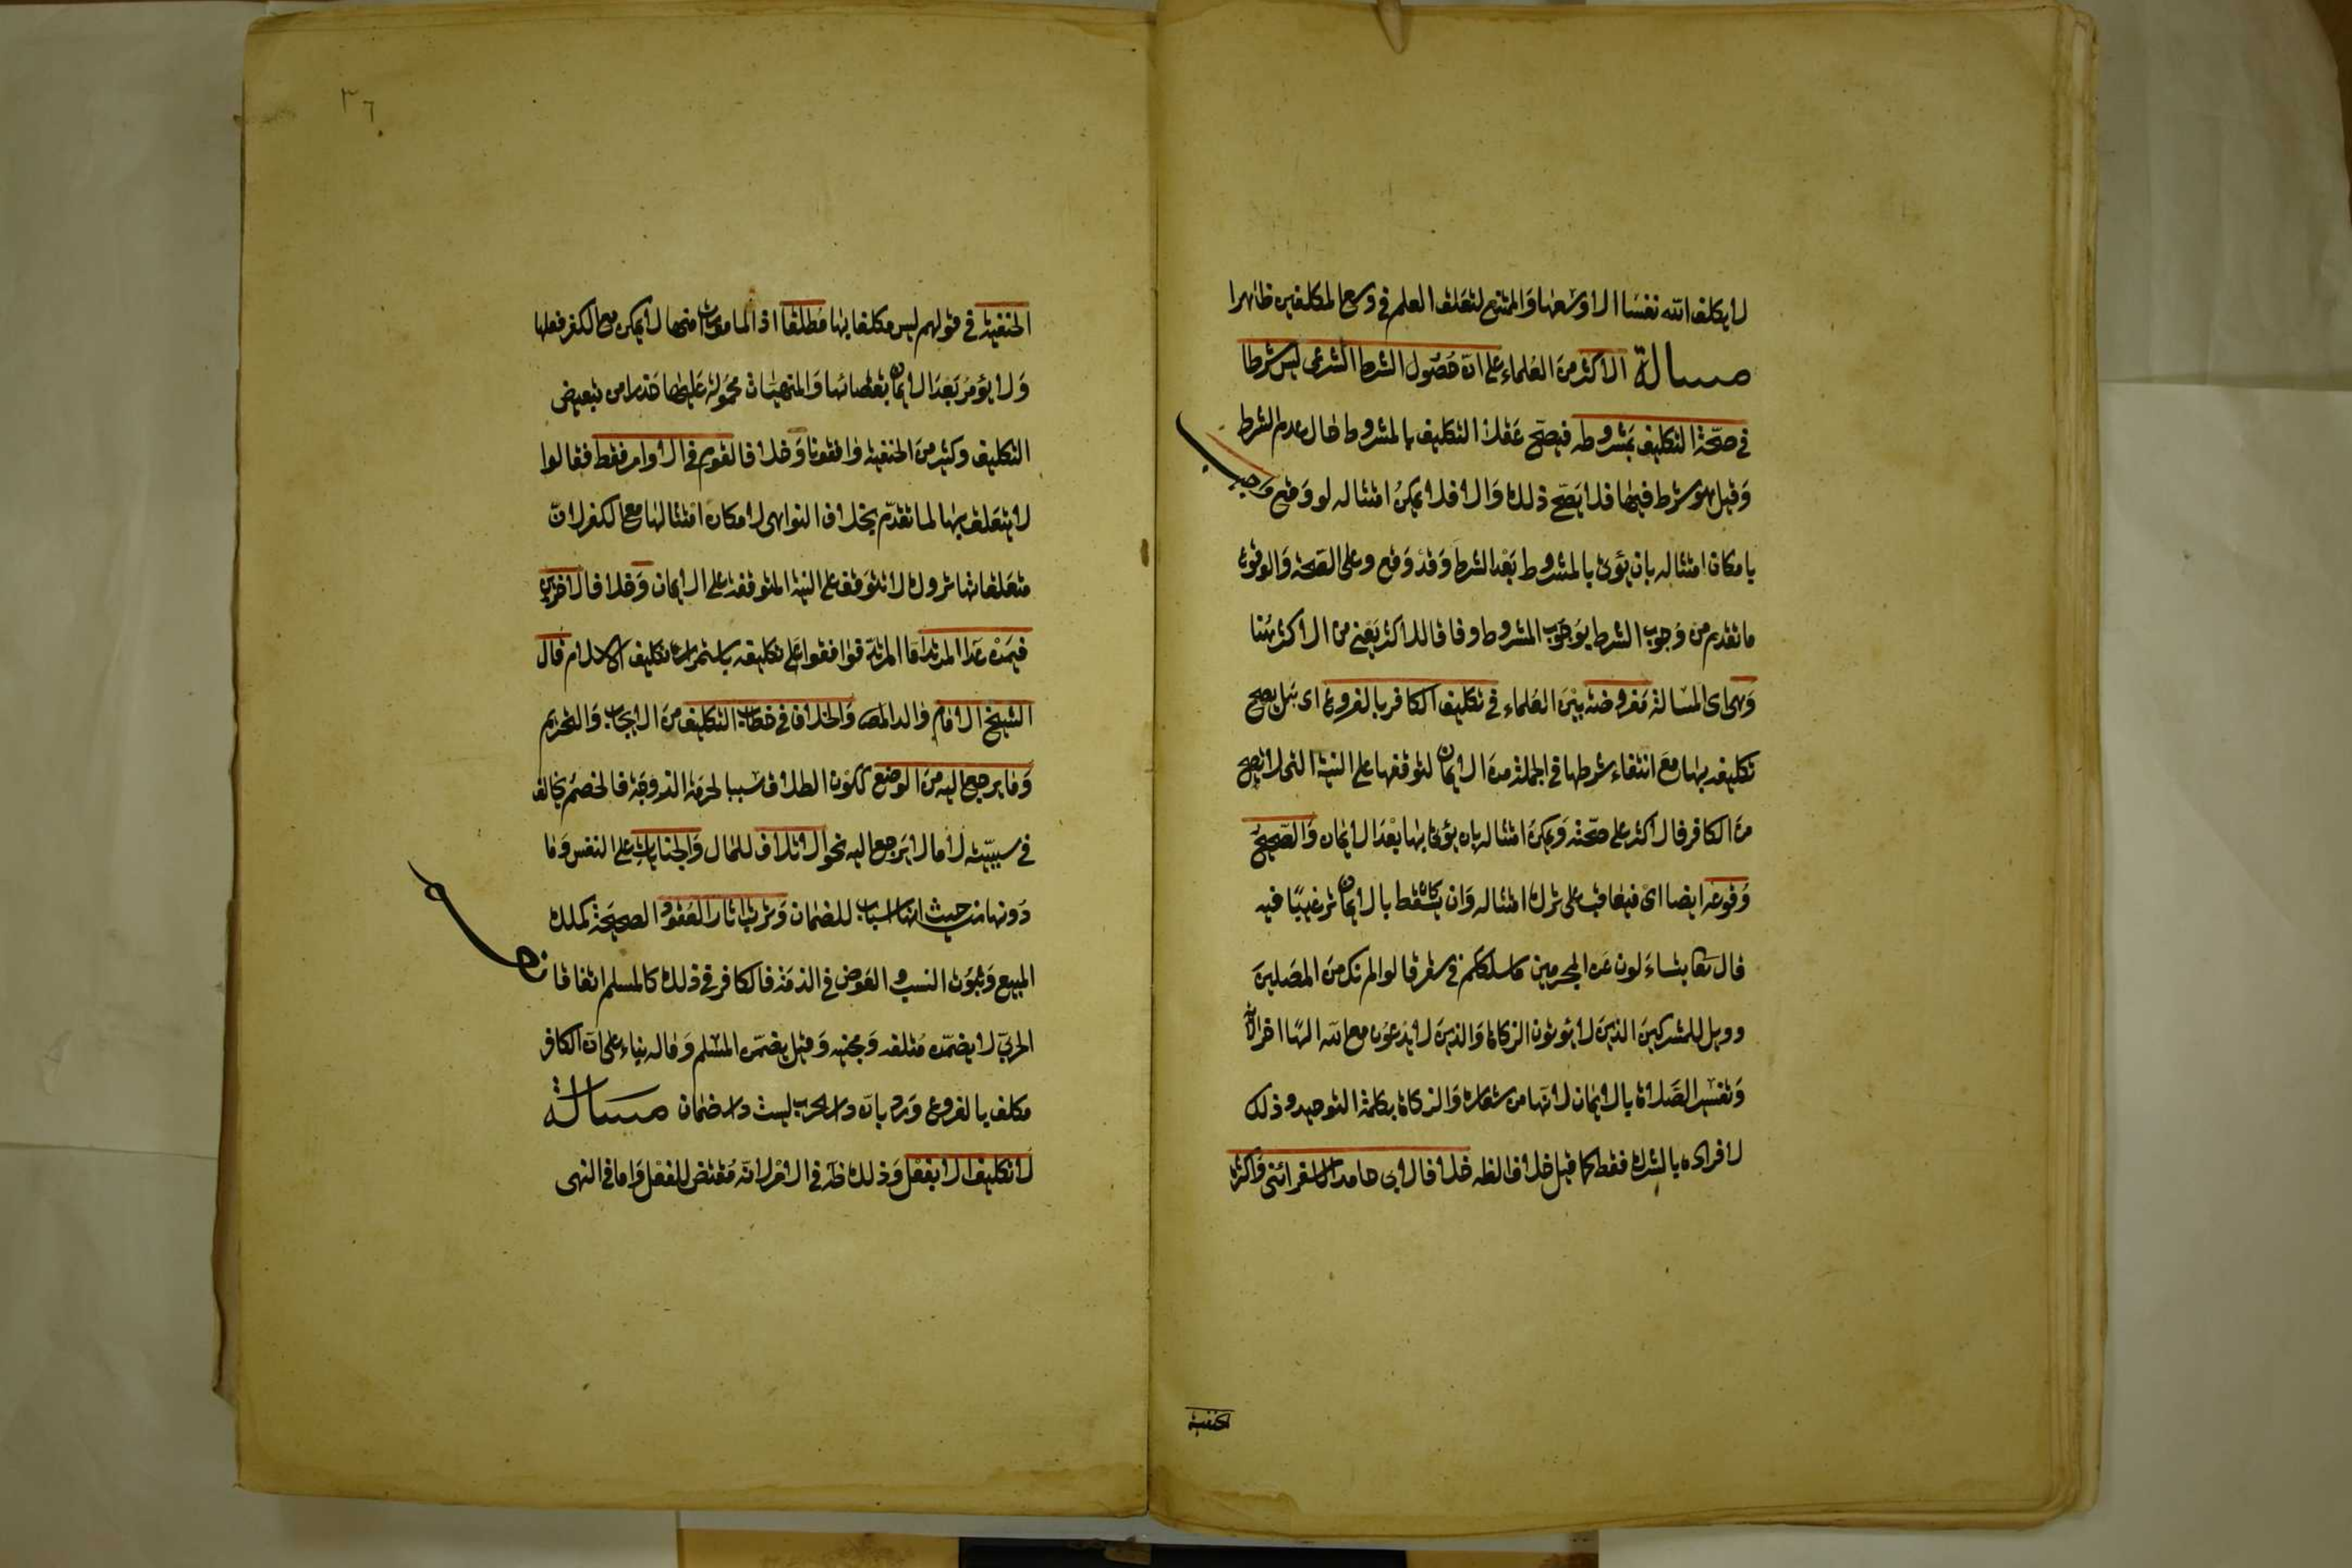 لا يكلف الله نفسا الا وسعها والممتنع لتعلق العلم في وسع المكلفين ظاهرا
مسالة الاكثر من العلماء على ان حصول الشرط الشرعي ليس شرطا
في صحة التكليف بمشروطه فيصح عقلا التكليف بالمشروط حال عدم الشرط
وقيل هو شرط فيها فلا يصح ذلك والا فلا يمكن امتثاله لو وقع واجيب
بامكان امتثاله بان يؤتى بالمشروط بعد الشرط وقد وقع وعلى الصحة والوقوع
ما تقدم من وجوب الشرط بوجوب المشروط وفاقا للاكثر يعني من الاكثر هنا
وهي اى المسالة مفروضة بين العلماء في تكليف الكافر بالفروع اى هل يصح
تكليفه بها مع انتفاء شرطها في الجملة من الايمان لتوقفها على النية التي لا تصح
من الكافر فالاكثر على صحته ويمكن امتثاله بان يؤتى بها بعد الايمان والصحيح
وقوعه ايضا اى فيعاقب على ترك امتثاله وان كان يسقط بالايمان ترغيبا فيه
قال تعا يتساءلون عن المجرمين ما سلككم في سقر قالوا لم نك من المصلين
وويل للمشركين الذين لا يؤتون الزكاة والذين لا يدعون مع الله الها اخر الآية
وتفسير الصلاة بالايمان لانها من شعاره والزكاة بكلمة التوحيد وذلك
لافراده بالشرك فقط كما قيل خلاف الظه خلافا لابي حامد الاسفرائني واكثر
الحنفية
٣٦
الحنفية في قولهم ليس مكلفا بها مطلقا اذ المامورات منها لا يمكن مع الكفر فعلها
ولا يؤمر بعد الايمان بقضائها والمنهيات محمولة عليها حذرا من تبعيض
التكليف وكثير من الحنفية وافقونا وخلافا لقوم في الاوامر فقط فقالوا
لا يتعلق بها لما تقدم بخلاف النواهى لامكان امتثالها مع الكفر لان
متعلقاتها تروك لا تتوقف على النية المتوقفة على الايمان وخلافا لاخرين
فيمن عدا المرتد اما المرتد فوافقوا على تكليفه باستمرار تكليف الاسلام قال
الشيخ الامام والد المص والخلاف في خطاب التكليف من الايجاب والتحريم
وما يرجع اليه من الوضع ككون الطلاق سببا لحرمة الزوجة فالخصم يخالف
في سببيته لا ما لا يرجع اليه نحو الاتلاف للمال والجنايات على النفس وما
دونها من حيث انها اسباب للضمان وترتب اثار العقود الصحيحة كملك
المبيع وثبوت النسب والعوض في الذمة فالكافر في ذلك كالمسلم اتفاقا نعم
الحربي لا يضمن متلفه ومجنيه وقيل يضمن المسلم وماله بناء على ان الكافر
مكلف بالفروع ورد بان دار الحرب ليست دار ضمان مسالة
لا تكليف الا بفعل وذلك ظه في الامر لانه مقتض للفعل واما في النهى